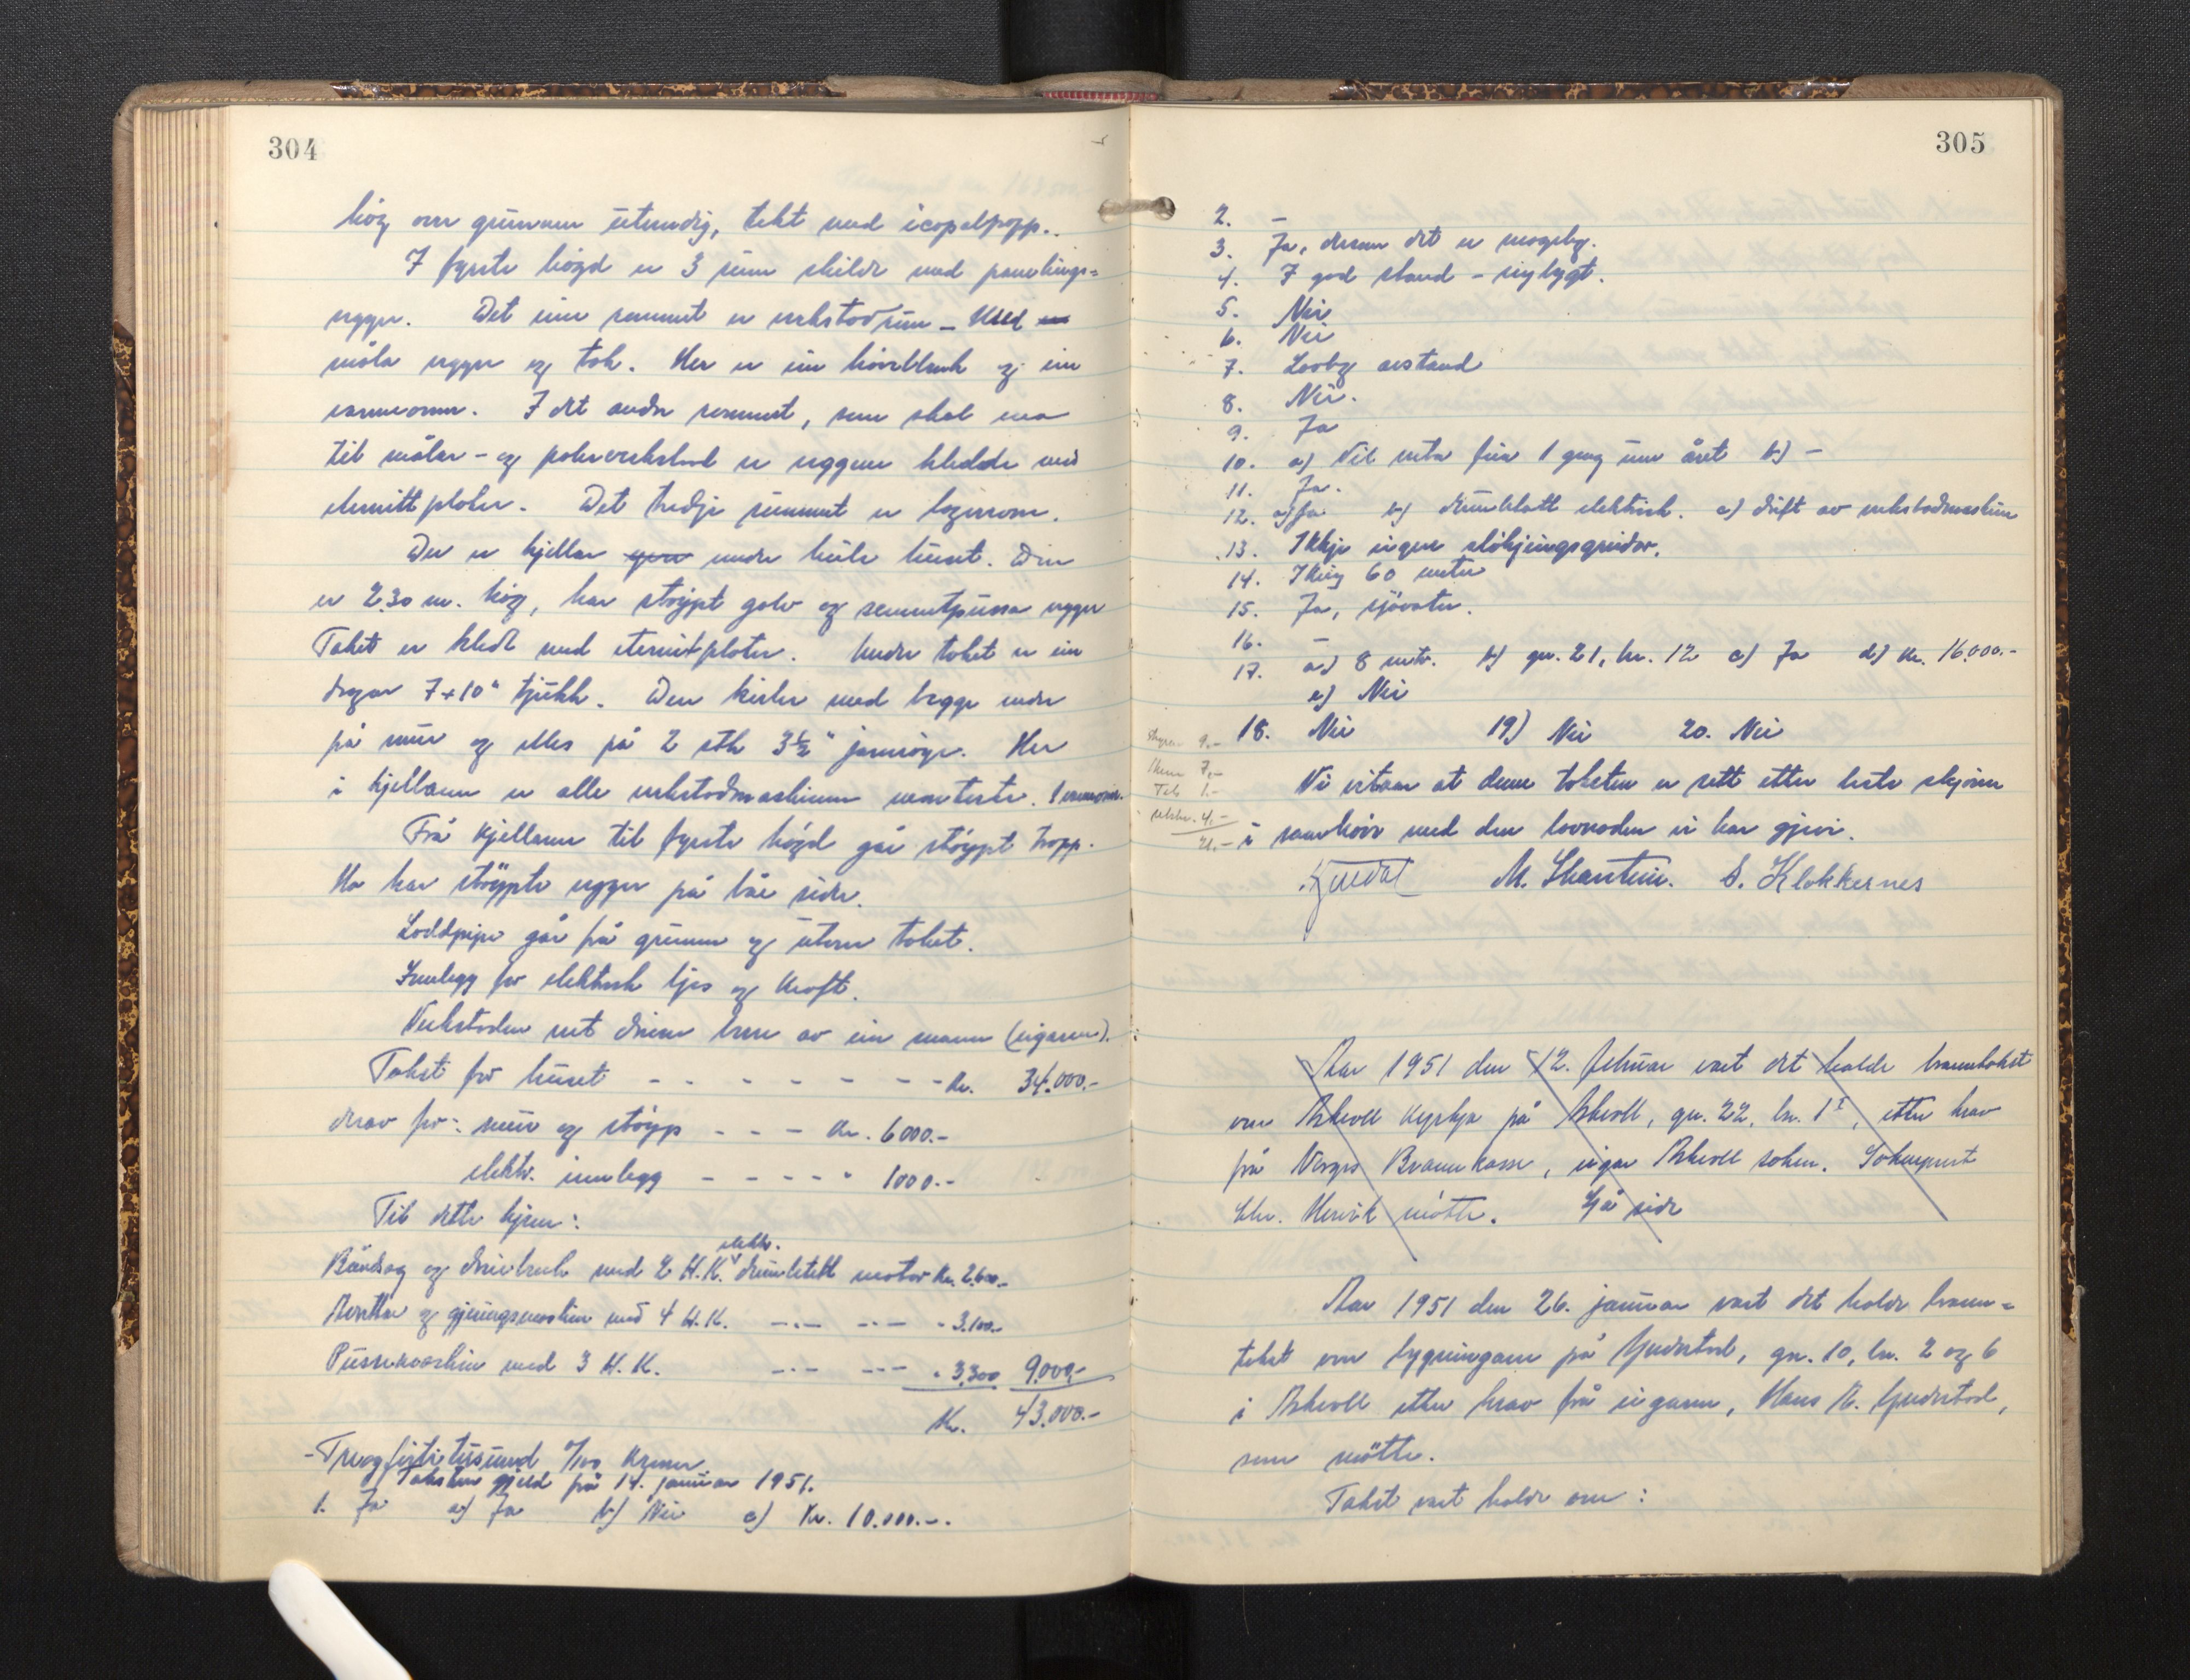 304
høg over grunnen utvendig, tekt med icopalpapp.
I fyrste høgd er 3 rum skilde med panelings-
vegger. Det eine rommet er verkstadrum - Med
måla vegger og tak. Her er ein høvelbenk og ein
varmeomn. I det andre rommet, som skal vera
til målar- og polerverkstad er veggene kledde med
eternittplater. Det tredje rummet er lagerrom.
Der er kjellar under heile huset. Den
er 2.30 m. høg, har støypt golv og sementpussa vegger
Taket er kledt med eternitplater. Under taket er ein
dragar 7x10" tjukk. Den kviler med begge ender
på mur og elles på 2 stk 3½" jarnrøyr. Her
i kjellaren er alle verkstadmaskinene monterte.
Frå kjellaren til fyrste høgd går støypt trapp.
Ho har støypte vegger på båe sider.
Loddpipe går frå grunnen og utover taket.
Innlegg for elektrisk ljos og kraft.
Verkstaden vert driven berre av ein mann (eigaren).
Takst for huset - - - - - - - Kr. 34.000.-
Herav for: mur og støyp - - - Kr. 6000.-
elektr. innlegg - - - - " 1000.-
Til dette kjem:
elektr.
Bandsag og dreiebenk med 2 H.K. drumletekt motor Kr. 2.600.-
Avrettar og gjeringsmaskin med 4 H.K. -"- -"- " 3.100.-
Pussemaskin med 3 H.K. -"- -"- " 3.300 9.000.-
Kr. 43.000.-
-Treogførtitusund 0/100 kroner
Taksten gjeld frå 14. januar 1951.
1. Ja a) Ja b) Nei c) Kr. 10.000.-.
305
2. -
3. Ja, dersom det er mogeleg.
4. I god stand - nybygt.
5. Nei
6. Nei
7. Lovleg avstand
8. Nei.
9. Ja
10. a) Vil verta feia 1 gong um året b) -
11. Ja.
12. a) Ja b) elektrisk. c) drift av verkstadmaskiner
13. Ikkje ingen sløkjingsgreidor.
14. Ikring 60 meter
15. Ja, sjøvatn.
16. -
17. a) 8 mtr. b) gn. 21, br. 12 c) Ja d) Kr. 16.000.-
e) Nei
18. Nei 19) Nei 20. Nei
9.-
7.-
1.-
4.-
21.-
Vi vitnar at denne taksten er sett etter beste skjønn
i samhøve med den lovnaden vi har gjeve.
M. Skarstein. S. Klokkernes
Aar 1951 den 12. februar vart det halde branntakst
over Askvoll kyrkje på Askvoll, gn. 22, br. 1, etter krav
frå Norges Brannkasse, eigar Askvoll sokn. Sokneprest
Chr. møtte. Sjå side
Aar 1951 den 26. januar vart det halde brann-
takst over bygningane på Gjerdstad, gn. 10, br. 2 og 6
i Askvoll etter krav frå eigaren, Hans A. Gjerdstad,
som møtte.
Takst vart halde over: